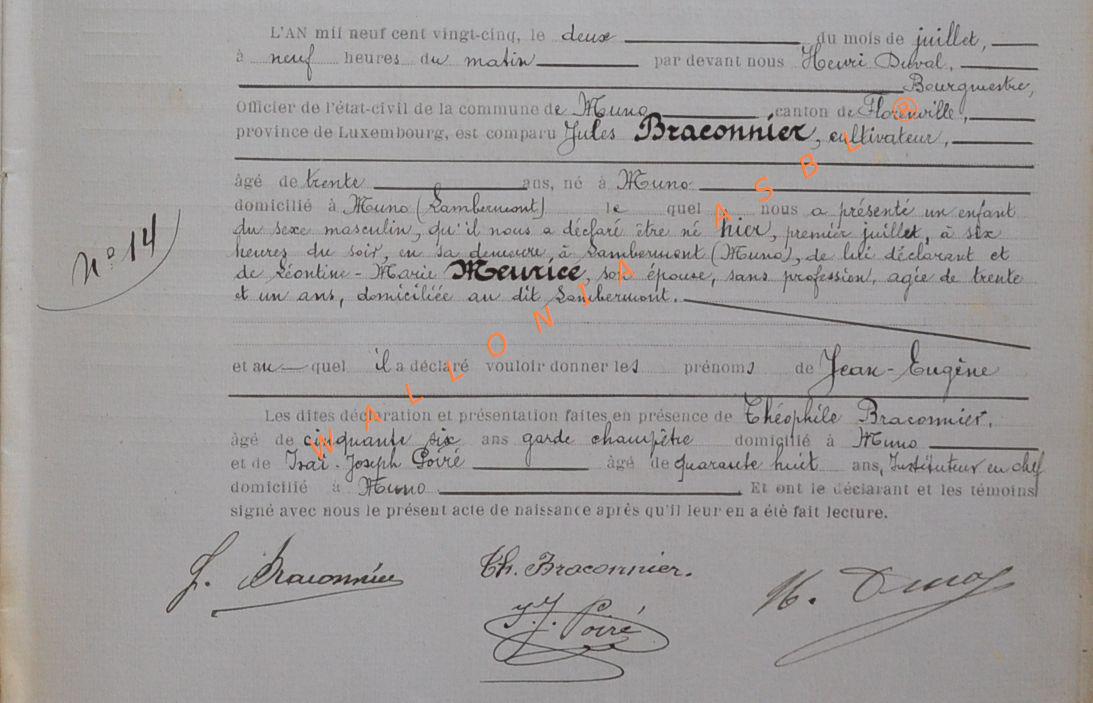 L'AN mil neuf cent vingt-cinq, le deux du mois de juillet,
à neuf heures du matin par devant nous Henri Duval,
Bourgmestre,
Officier de l'état-civil de la commune de Muno canton de Florenville,
province de Luxembourg, est comparu Jules Braconnier, cultivateur,
âgé de trente ans, né à Muno
domicilié à Muno (Lambermont) le quel nous a présenté un enfant
du sexe masculin, qu'il nous a déclaré être né hier, premier juillet, à six
heures du soir, en sa demeure, à Lambermont (Muno), de lui déclarant et
de Léontine-Marie Meurice, son épouse, sans profession, agée de trente
et un ans, domiciliée au dit Lambermont.
N° 14
et au quel il a déclaré vouloir donner les prénoms de Jean-Eugène
Les dites déclaration et présentation faites en présence de Théophile Braconnier,
âgé de cinquante six ans garde champêtre domicilié à Muno
et de Joseph Poiré âgé de quarante huit ans, Instituteur en chef
domicilié à Muno Et ont le déclarant et les témoins
signé avec nous le présent acte de naissance après qu'il leur en a été fait lecture.
J. Braconnier Th. Braconnier. H. Duval
J. J. Poiré
WALLONIA ASBL ®